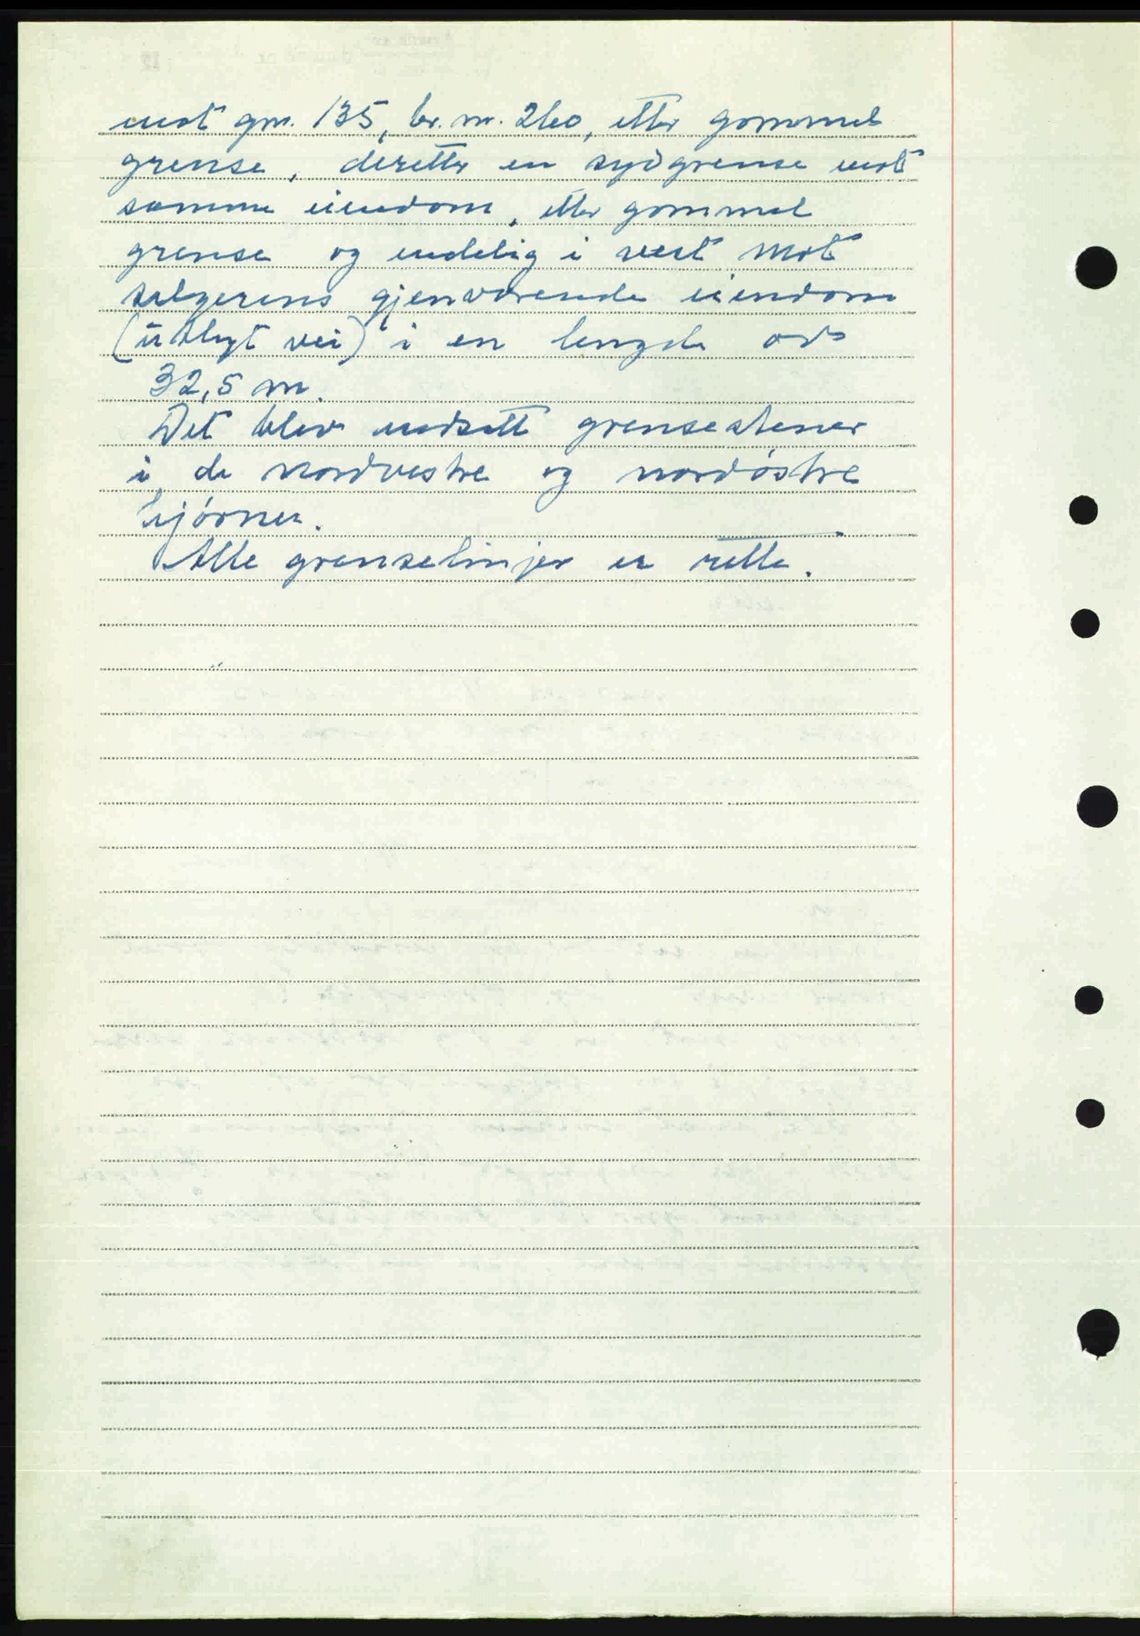 mot gnr. 135, br. nr. 260, etter gammel
grense, deretter en sydgrense mot
samme eiendom, etter gammel
grense og endelig i vest mot
selgerens gjenværende eiendom
(utlagt vei) i en lengde av
32,5 m.
Det blev nedsatt grensestener
i de nordvestre og nordøstre
hjørner.
Alle grenselinjer er rette.